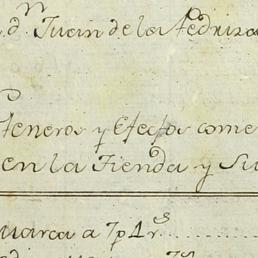 dn. Juan de la Pedriza
Generos y Efectos come
en la Tienda y Su
marca a 7p 1 rs.